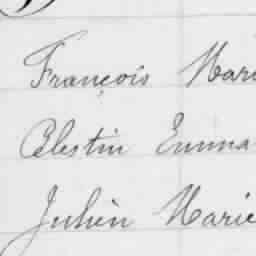 François Mari
Célestin Emma
Julien Marie